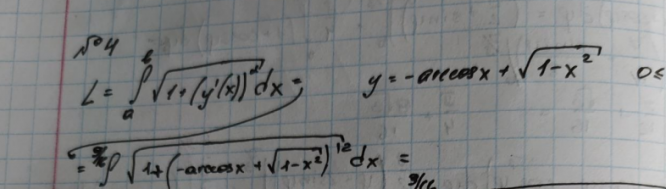 №4
L = ∫ₐᵇ √(1+(y'(x))²) dx =    y = -arccos x + √(1-x²)    0≤
= ∫ √(1+(-arccos x + √(1-x²))'² dx =
9/16